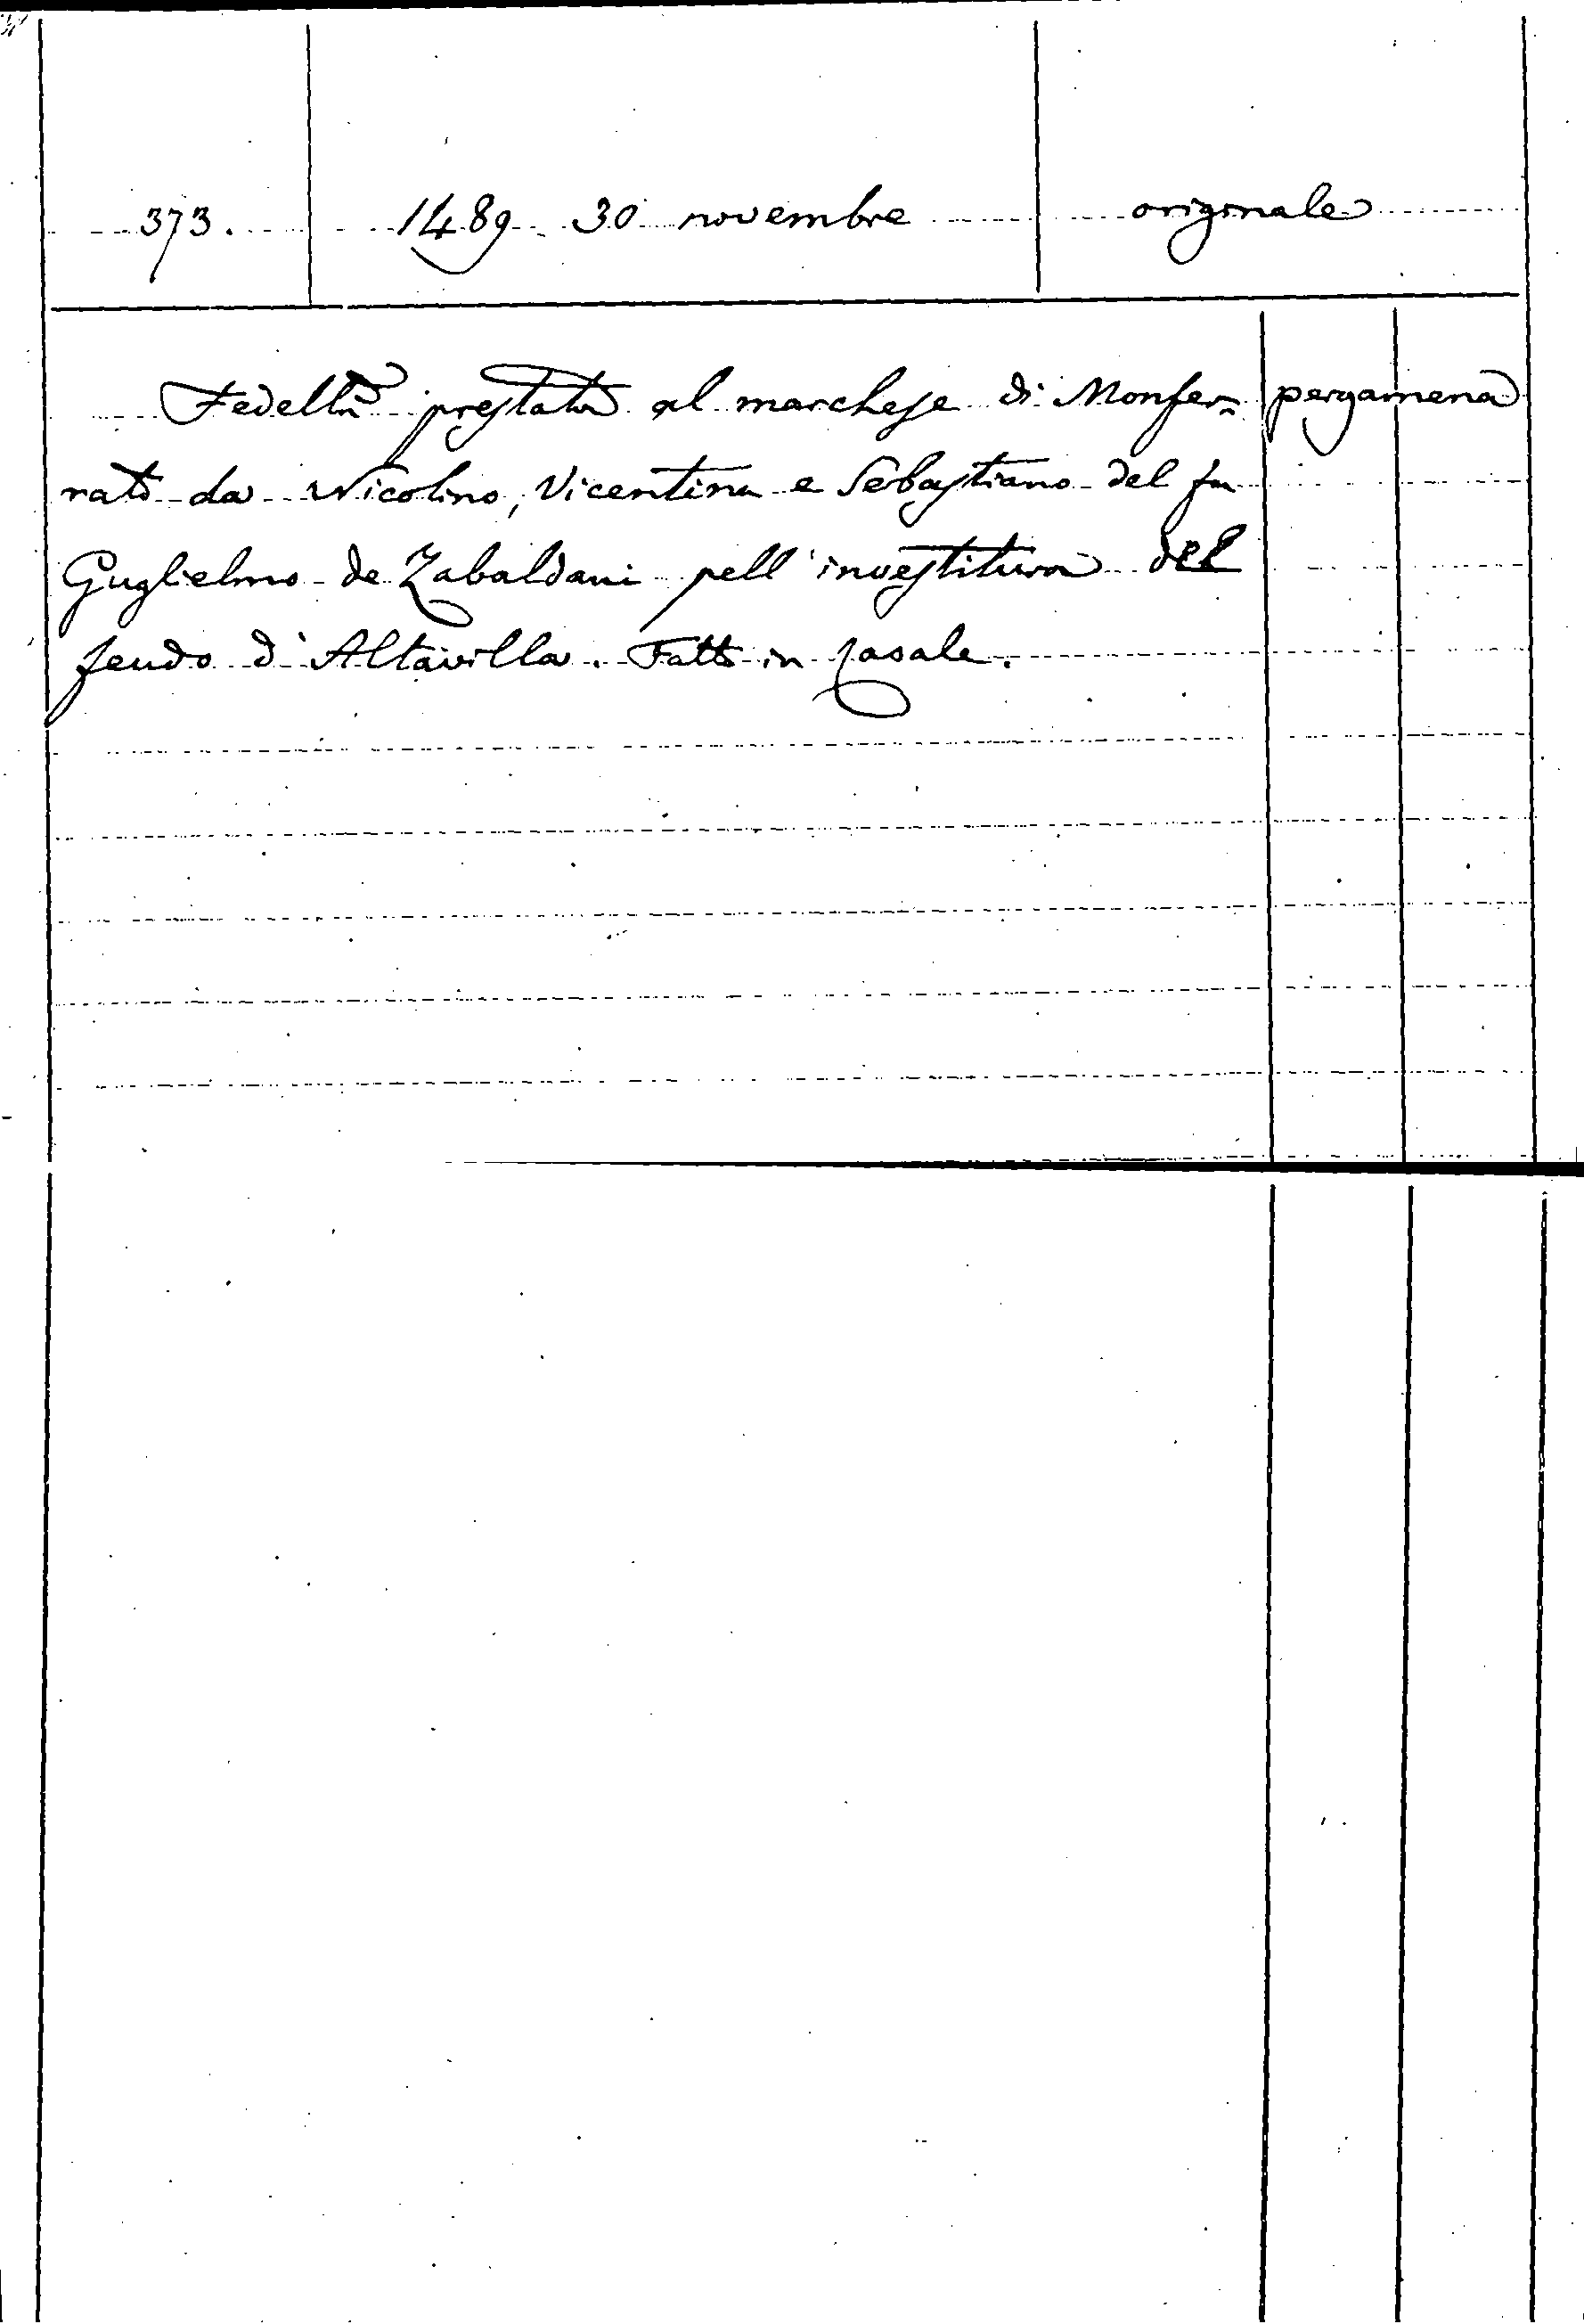 373. 1489 30 novembre originale
Fedeltà prestata al marchese di Monfer= pergamena
rato da Nicolino, Vicentino e Sebastiano del fu
Guglielmo de Zabaldani pell'investitura del
feudo d'Altavilla. Fatto in Casale.